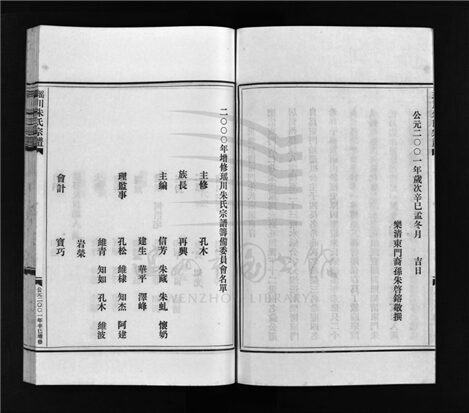 公元二〇〇一年歲次辛巳孟冬月　吉日
樂清東門裔孫朱啓鎔敬撰
二〇〇〇年增修瑤川朱氏宗譜籌備委員會名單
主修　孔木
族長　再興
主編　信芳　朱藏　朱虬　懷奶
建生　華平　澤峰
理監事　孔松　維棣　知杰　阿建
維青　知如　孔木　維波
岩榮
會計　寶巧
瑤川朱氏宗譜
公元二〇〇一年辛巳增修
WENZHOU LIBRARY